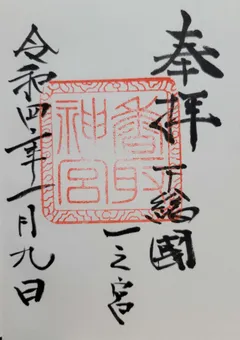 奉拝
下総國
一之宮
香取神宮
令和四年一月九日